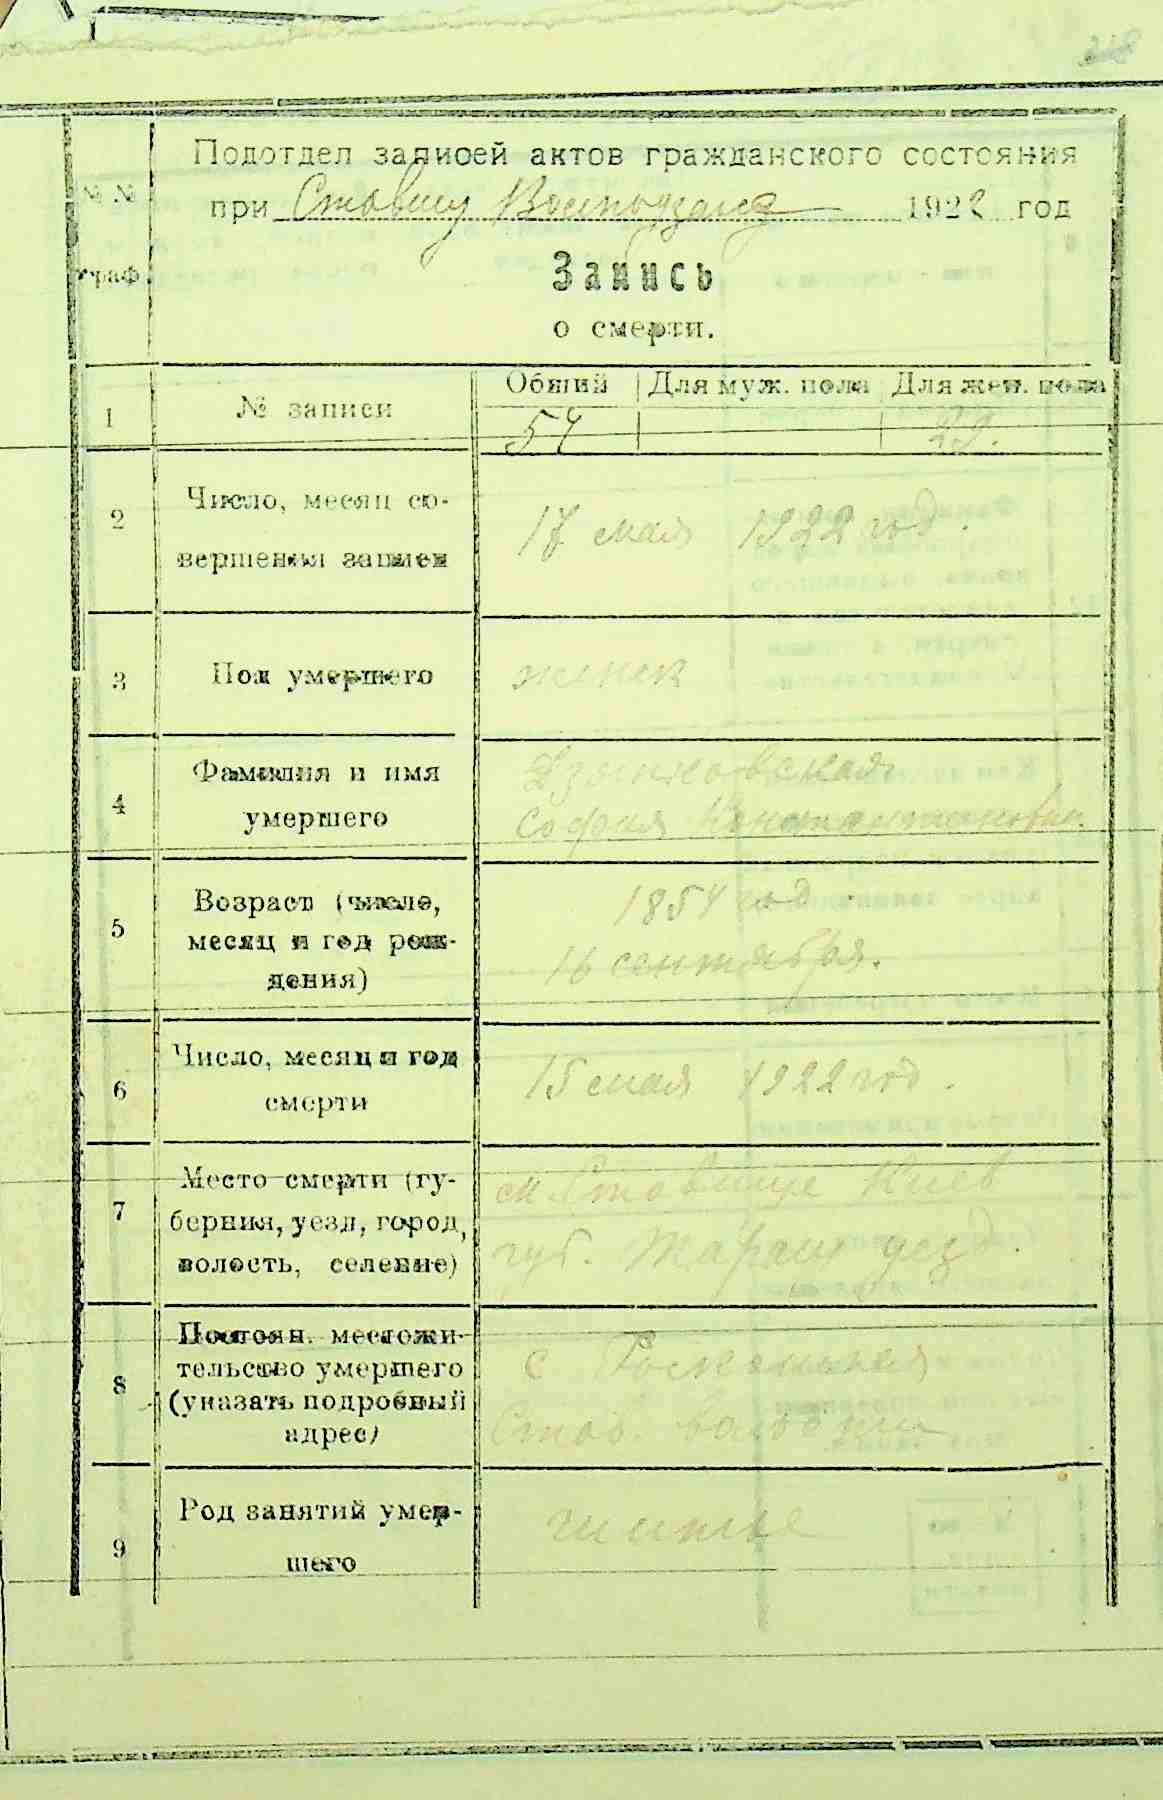 318
Подотдел записей актов гражданского состояния
при Ставищ 1922 год
№ №
граф.
Запись
о смерти.
1 № записи Общий Для муж. пола Для жен. пола
54 29.
2 Число, месяц со-
вершения записи
17 мая 1922 год.
3 Пол умершего женск
4 Фамилия и имя
умершего
София Константиновн.
5 Возраст (число,
месяц и год рож-
дения)
1854 год.
16 сентября.
6 Число, месяц и год
смерти
15 мая 1922 год.
7 Место смерти (гу-
берния, уезд, город,
волость, селение)
м. Ставище Киев
губ. Таращ уезд.
8 Постоян. местожи-
тельство умершего
(указать подробный
адрес)
с
Став. волости
9 Род занятий умер-
шего
шитье